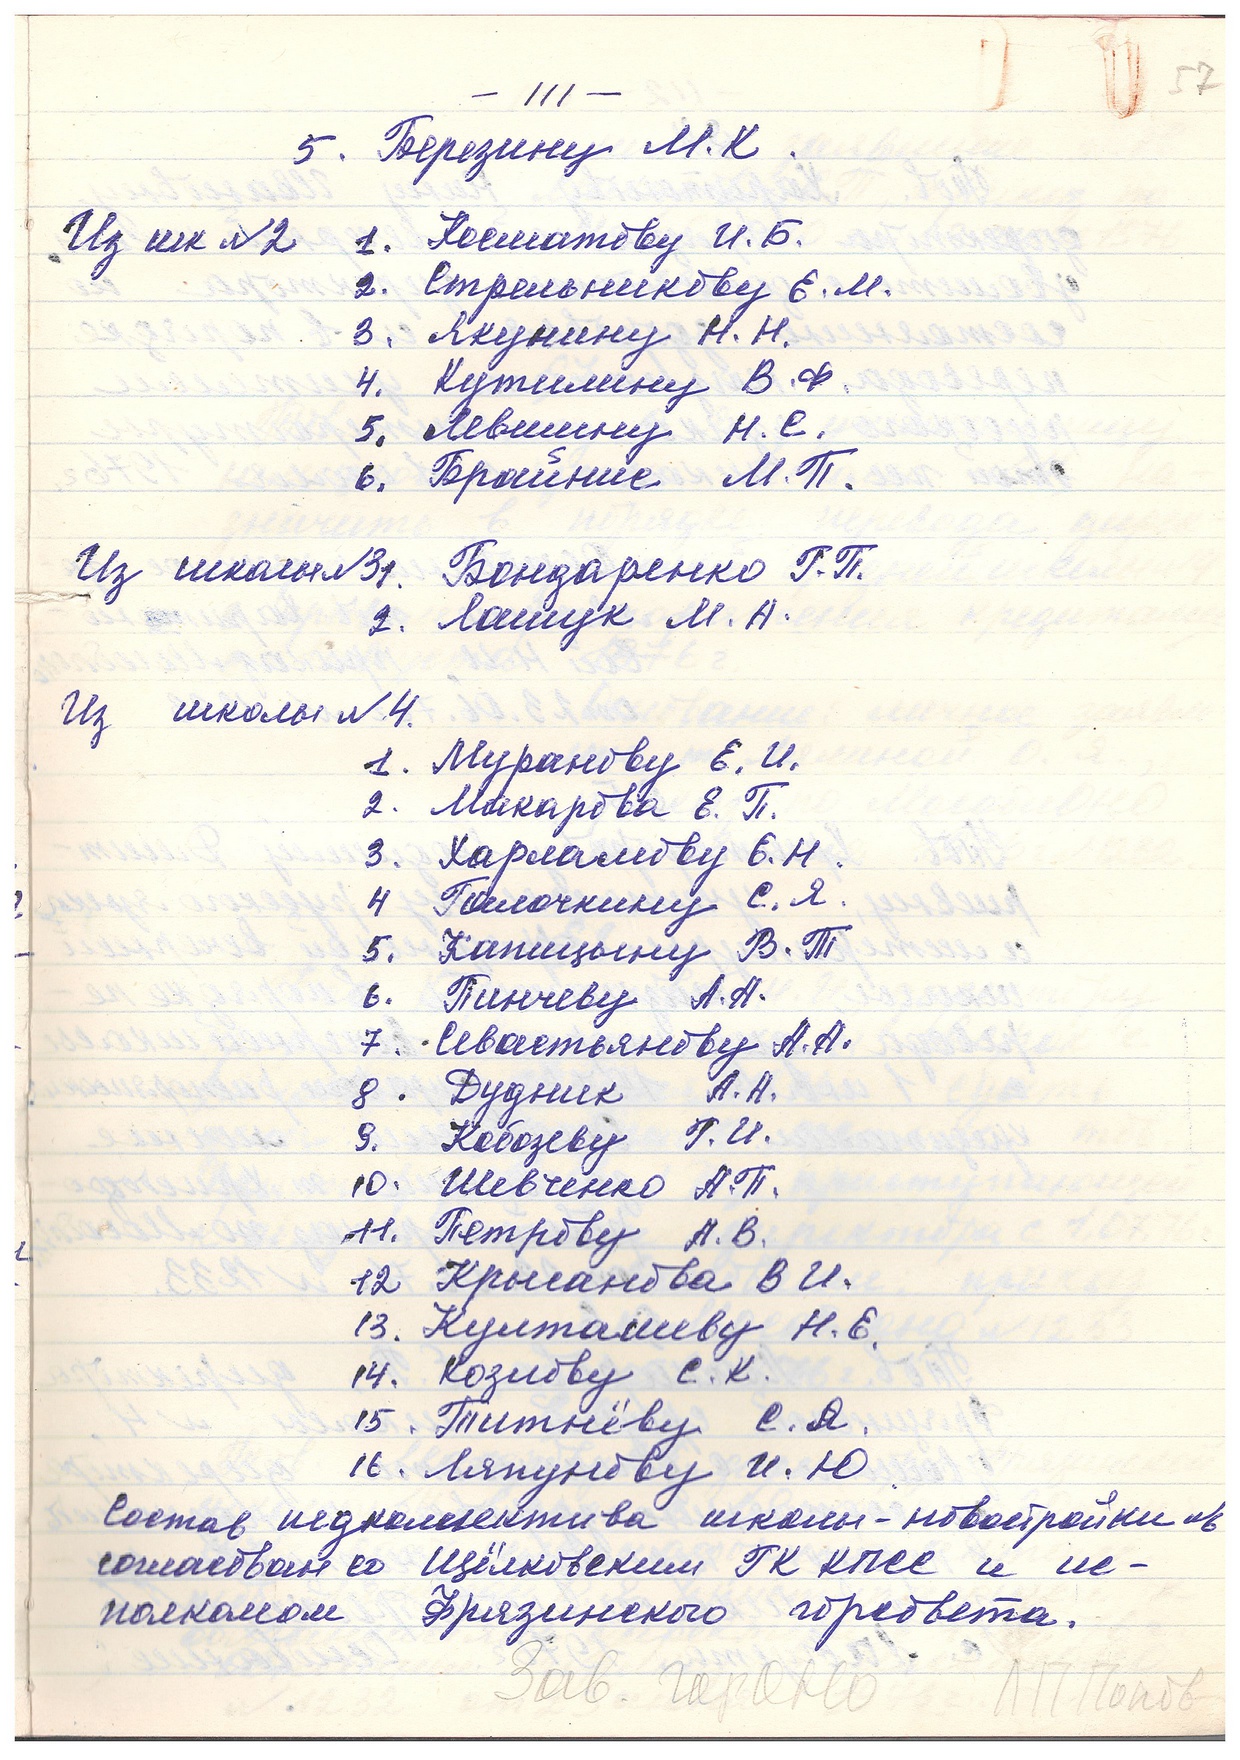 57
– 111 –
5. Березину М.К.
Из шк №2 1. Косматову И.Б.
2. Стрельникову Е.М.
3. Якунину Н.Н.
4. Кутилину В.Ф.
5. Левшину Н.С.
6. Брайнис М.П.
Из школы №3 1. Бондаренко Г.П.
2. Лащук М.А.
Из школы №4.
1. Муранову Е.И.
2. Макарова Е.П.
3. Харламову Е.Н.
4 Галочкину С.Я.
5. Капицыну В.Т
6. Пинчеву А.А.
7. Севастьянову А.А.
8. Дудник А.А.
9. Кобозеву Г.И.
10. Шевченко А.П.
11. Петрову А.В.
12 Крысанова В И.
13. Култашеву Н.Е.
14. Козлову С.К.
15. Титнёву С.Я.
16. Ляпунову И.Ю
Состав педколлектива школы-новостройки №
согласован со Щёлковским ГК КПСС и ис-
полкомом Фрязинского горсовета.
Зав. горОНО ЛППопов